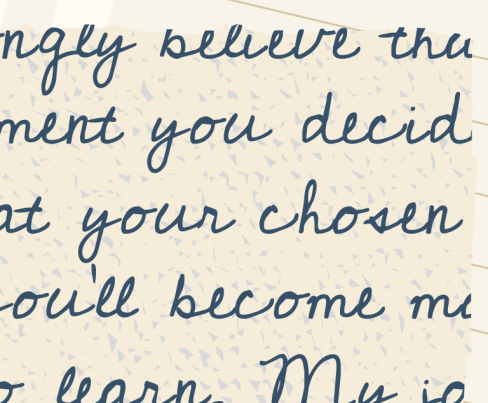 ngly believe tha
ment you decid
at your chosen
ou'll become mo
o learn. My jo